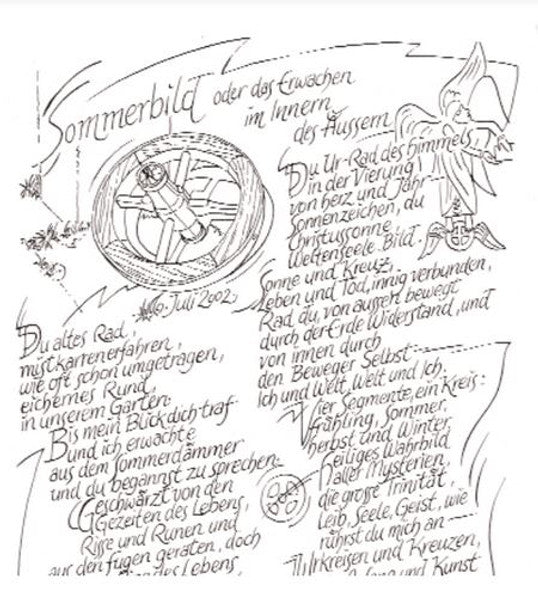 Sommerbild oder das Erwachen
im Innern
des Äussern
16. Juli 2002
Du altes Rad,
mistkarrenerfahren,
wie oft schon umgetragen,
eichernes Rund,
in unserem Garten.
Bis mein Blick dich traf
und ich erwachte
aus dem Sommerdämmer
und du begannst zu sprechen.
Geschwärzt von den
Gezeiten des Lebens,
Risse und Runen und
aus den Fugen geraten, doch
des Lebens,
Du Ur-Rad des Himmels
in der Vierung
von Herz und Jahr
Sonnenzeichen, du
Christussonne
Weltenseele-Bild.
Sonne und Kreuz,
Leben und Tod, innig verbunden,
Rad du, von aussen bewegt
durch der Erde Widerstand, und
von innen durch
den Beweger Selbst
Ich und Welt, Welt und Ich.
Vier Segmente, ein Kreis:
Frühling, Sommer,
Herbst und Winter,
heiliges Wahrbild
aller Mysterien,
die große Trinität,
Leib, Seele, Geist, wie
rührst du mich an
Urkreisen und Kreuzen,
und Kunst